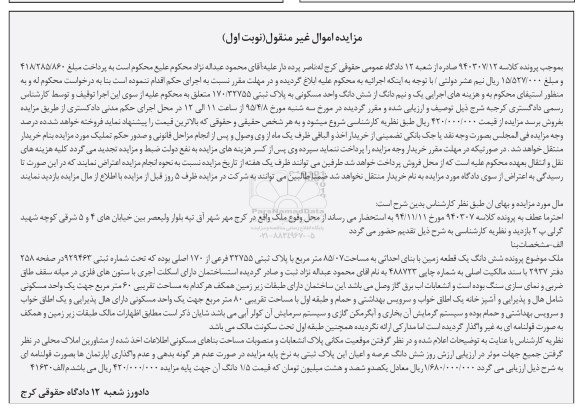 مزایده اموال غیر منقول(نوبت اول)
بموجب پرونده کلاسه ۹۴۰۳۰۷/۱۲ صادره از شعبه ۱۲ دادگاه عمومی حقوقی کرج له:ناصر پرده دار علیه:آقای محمود عبداله نژاد محکوم علیه محکوم است به پرداخت مبلغ ۴۱۸/۲۸۵/۸۶۰
و مبلغ ۱۵/۵۲۷/۰۰۰ ریال نیم عشر دولتی / با توجه به اینکه اجرائیه به محکوم علیه ابلاغ گردیده و در مهلت مقرر نسبت به اجرای حکم اقدام ننموده است بنا به درخواست محکوم له و به
منظور استیفای محکوم به و هزینه های اجرایی یک و نیم دانگ از شش دانگ واحد مسکونی به پلاک ثبتی ۱۷۰/۳۲۷۵۵ متعلق به محکوم علیه از سوی این اجرا توقیف و توسط کارشناس
رسمی دادگستری کرجبه شرح ذیل توصیف و ارزیابی شده و مقرر گردیده در مورخ سه شنبه مورخ ۹۵/۴/۸ از ساعت ۱۱ الی ۱۲ در محل اجرای حکم مدنی دادگستری از طریق مزایده
بفروش برسد مزایده از قیمت ۴۲۰/۰۰۰/۰۰۰ ریال طبق نظریه کارشناسی شروع میشود و به هر شخص حقیقی و حقوقی که بالاترین قیمت را پیشنهاد نماید فروخته خواهد شد،ده درصد
وجه مزایده فی المجلس بصورت وجه نقد یا چک بانکی تضمینی از خریدار اخذ و الباقی ظرف یک ماه از وی وصول و پس از انجام مراحل قانونی و صدور حکم تملیک مورد مزایده بنام خریدار
منتقل خواهد شد . در صورتیکه در مهلت مقرر خریدار وجه مزایده را پرداخت ننماید سپرده وی پس از کسر هزینه های مزایده به نفع دولت ضبط و مزایده تجدید می گردد کلیه هزینه های
نقل و انتقال بعهده محکوم علیه است که از محل فروش پرداخت خواهد شد طرفین می توانند ظرف یک هفته از تاریخ مزایده نسبت به نحوه انجام مزایده اعتراض نمایند که در این صورت تا
رسیدگی به اعتراض از سوی دادگاه مورد مزایده به نام خریدار منتقل نخواهد شد ضمنا طالبین می توانند به شرکت در مزایده ظرف ۵ روز قبل از مزایده با اطلاع از مال مزایده بازدید نمایند
مال مورد مزایده و بهای ان طبق نظر کارشناس بدین شرح است:
احتراما عطف به پرونده کلاسه ۹۴۰۳۰۷ مورخ ۹۴/۱۱/۱۱ به استحضار می رساند از محل وقوع ملک واقع در کرج مهر شهر آق تپه بلوار ولیعصر بین خیابان های ۴ و ۵ شرقی کوچه شهید
گرلی پ ۲ بازدید و نظریه کارشناسی به شرح ذیل تقدیم حضور می گردد
الف-مشخصات:بنا
ملک موضوع پرونده شش دانگ یک قطعه زمین با بنای احداثی به مساحت۸۵/۰۷ متر مربع با پلاک ثبتی ۳۲۷۵۵ فرعی از ۱۷۰ اصلی بوده که تحت شماره ثبتی ۹۲۹۴۶۳در صفحه ۲۵۸
دفتر ۲۹۳۷ با سند مالکیت اصلی به شماره چاپی ۴۸۸۷۲۳ به نام آقای محمود عبداله نژاد ثبت و صادر گردیده استساختمان دارای اسکلت آجری با ستون های فلزی در میانه سقف طاق
ضربی و نمای سازی سنگ بوده است و انشعابات اب برق گاز وصل می باشد.این ساختمان دارای طبقات زیر زمین همکف هرکدام به مساحت تقریبی ۶۰ متر مربع جهت یک واحد مسکونی
شامل هال و پذیرایی و آشپز خانه یک اطاق خواب و سرویس بهداشتی و حمام و طبقه اول با مساحت تقریبی ۸۰ متر مربع جهت یک واحد مسکونی دارای هال پذیرایی و یک اطاق خواب
و سرویس بهداشتی و حمام بوده و سیستم گرمایش آن بخاری و آبگرمکن گازی و سیستم سرمایش آن کولر آبی می باشد شایان ذکر است مطابق اظهارات مالک طبقات زیر زمین و همکف
به صورت قولنامه ای به غیر واگذار گردیده است اما مدارکی ارائه نگردیده همچنین طبقه اول تحت سکونت مالک می باشد
نظریه کارشناس با عنایت به توضیحات اعلام شده و در نظر گرفتن موقعیت مکانی پلاک انشعابات و منصوبات مساحت بناهای مسکونی اطلاعات اخذ شده از مشاورین املاک محلی در نظر
گرفتن جمیع جهات موثر در ارزیابی ارزش روز شش دانگ عرصه و اعیان این پلاک ثبتی به نرخ پایه مزایده در صورت عدم هر گونه بدهی و عدم واگذاری اپارتمان ها بصورت قولنامه ای
به شرح ذیل ارزیابی می گردد ۱/۶۸۰/۰۰۰/۰۰۰ریال معادل یکصدو شصد و هشت میلیون تومان که قیمت ۱/۵ دانگ آن جهت پایه مزایده ۴۲۰/۰۰۰/۰۰۰ ریال می باشد.م/الف۴۱۶۳۰
دادورز شعبه ۱۲ دادگاه حقوقی کرج